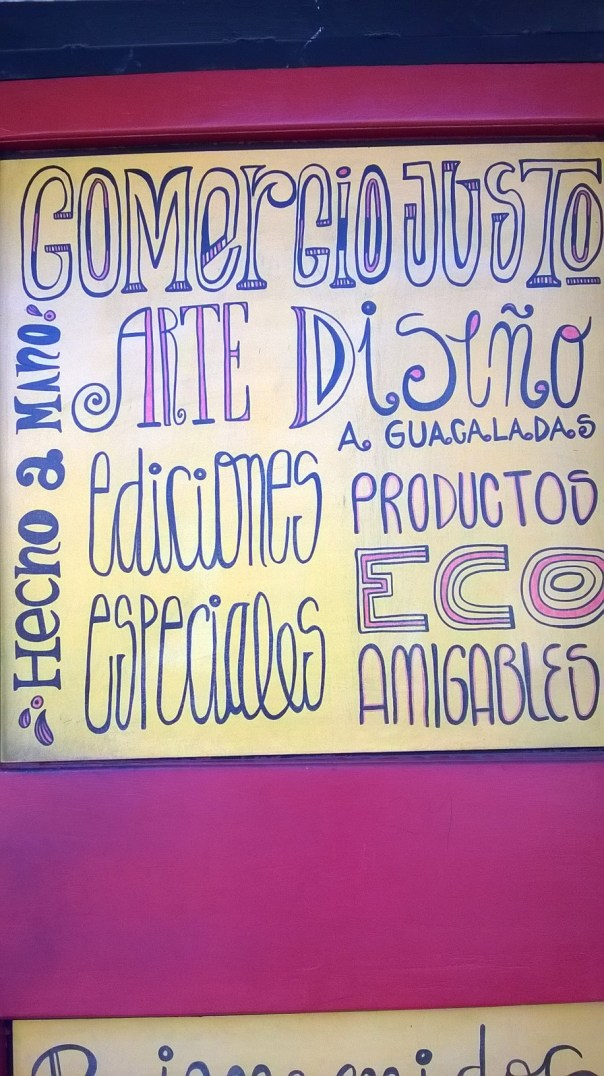 COMercio JUSTO
ARTE Diseño
A GUACALADAS
¡Hecho a MANO!
ediciones
especiales
PRODUCTOS
ECO
AMIGABLES